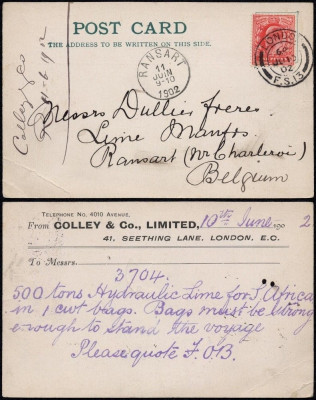 POST CARD
THE ADDRESS TO BE WRITTEN ON THIS SIDE.
Colley & Co
RANSART
11
JUIN
9-10
1902
LONDON
02
F.S.13
Messrs Dullier freres
Lime Manfrs
Ransart (nr Charleroi)
Belgium
TELEPHONE No. 4010 AVENUE.
From COLLEY & Co., LIMITED, 10th June 190 2
41, SEETHING LANE, LONDON, E.C.
To Messrs.
3704.
500 tons Hydraulic Lime for S Africa
in 1 cwt bags. Bags must be strong
enough to stand the voyage
Please quote F.O.B.